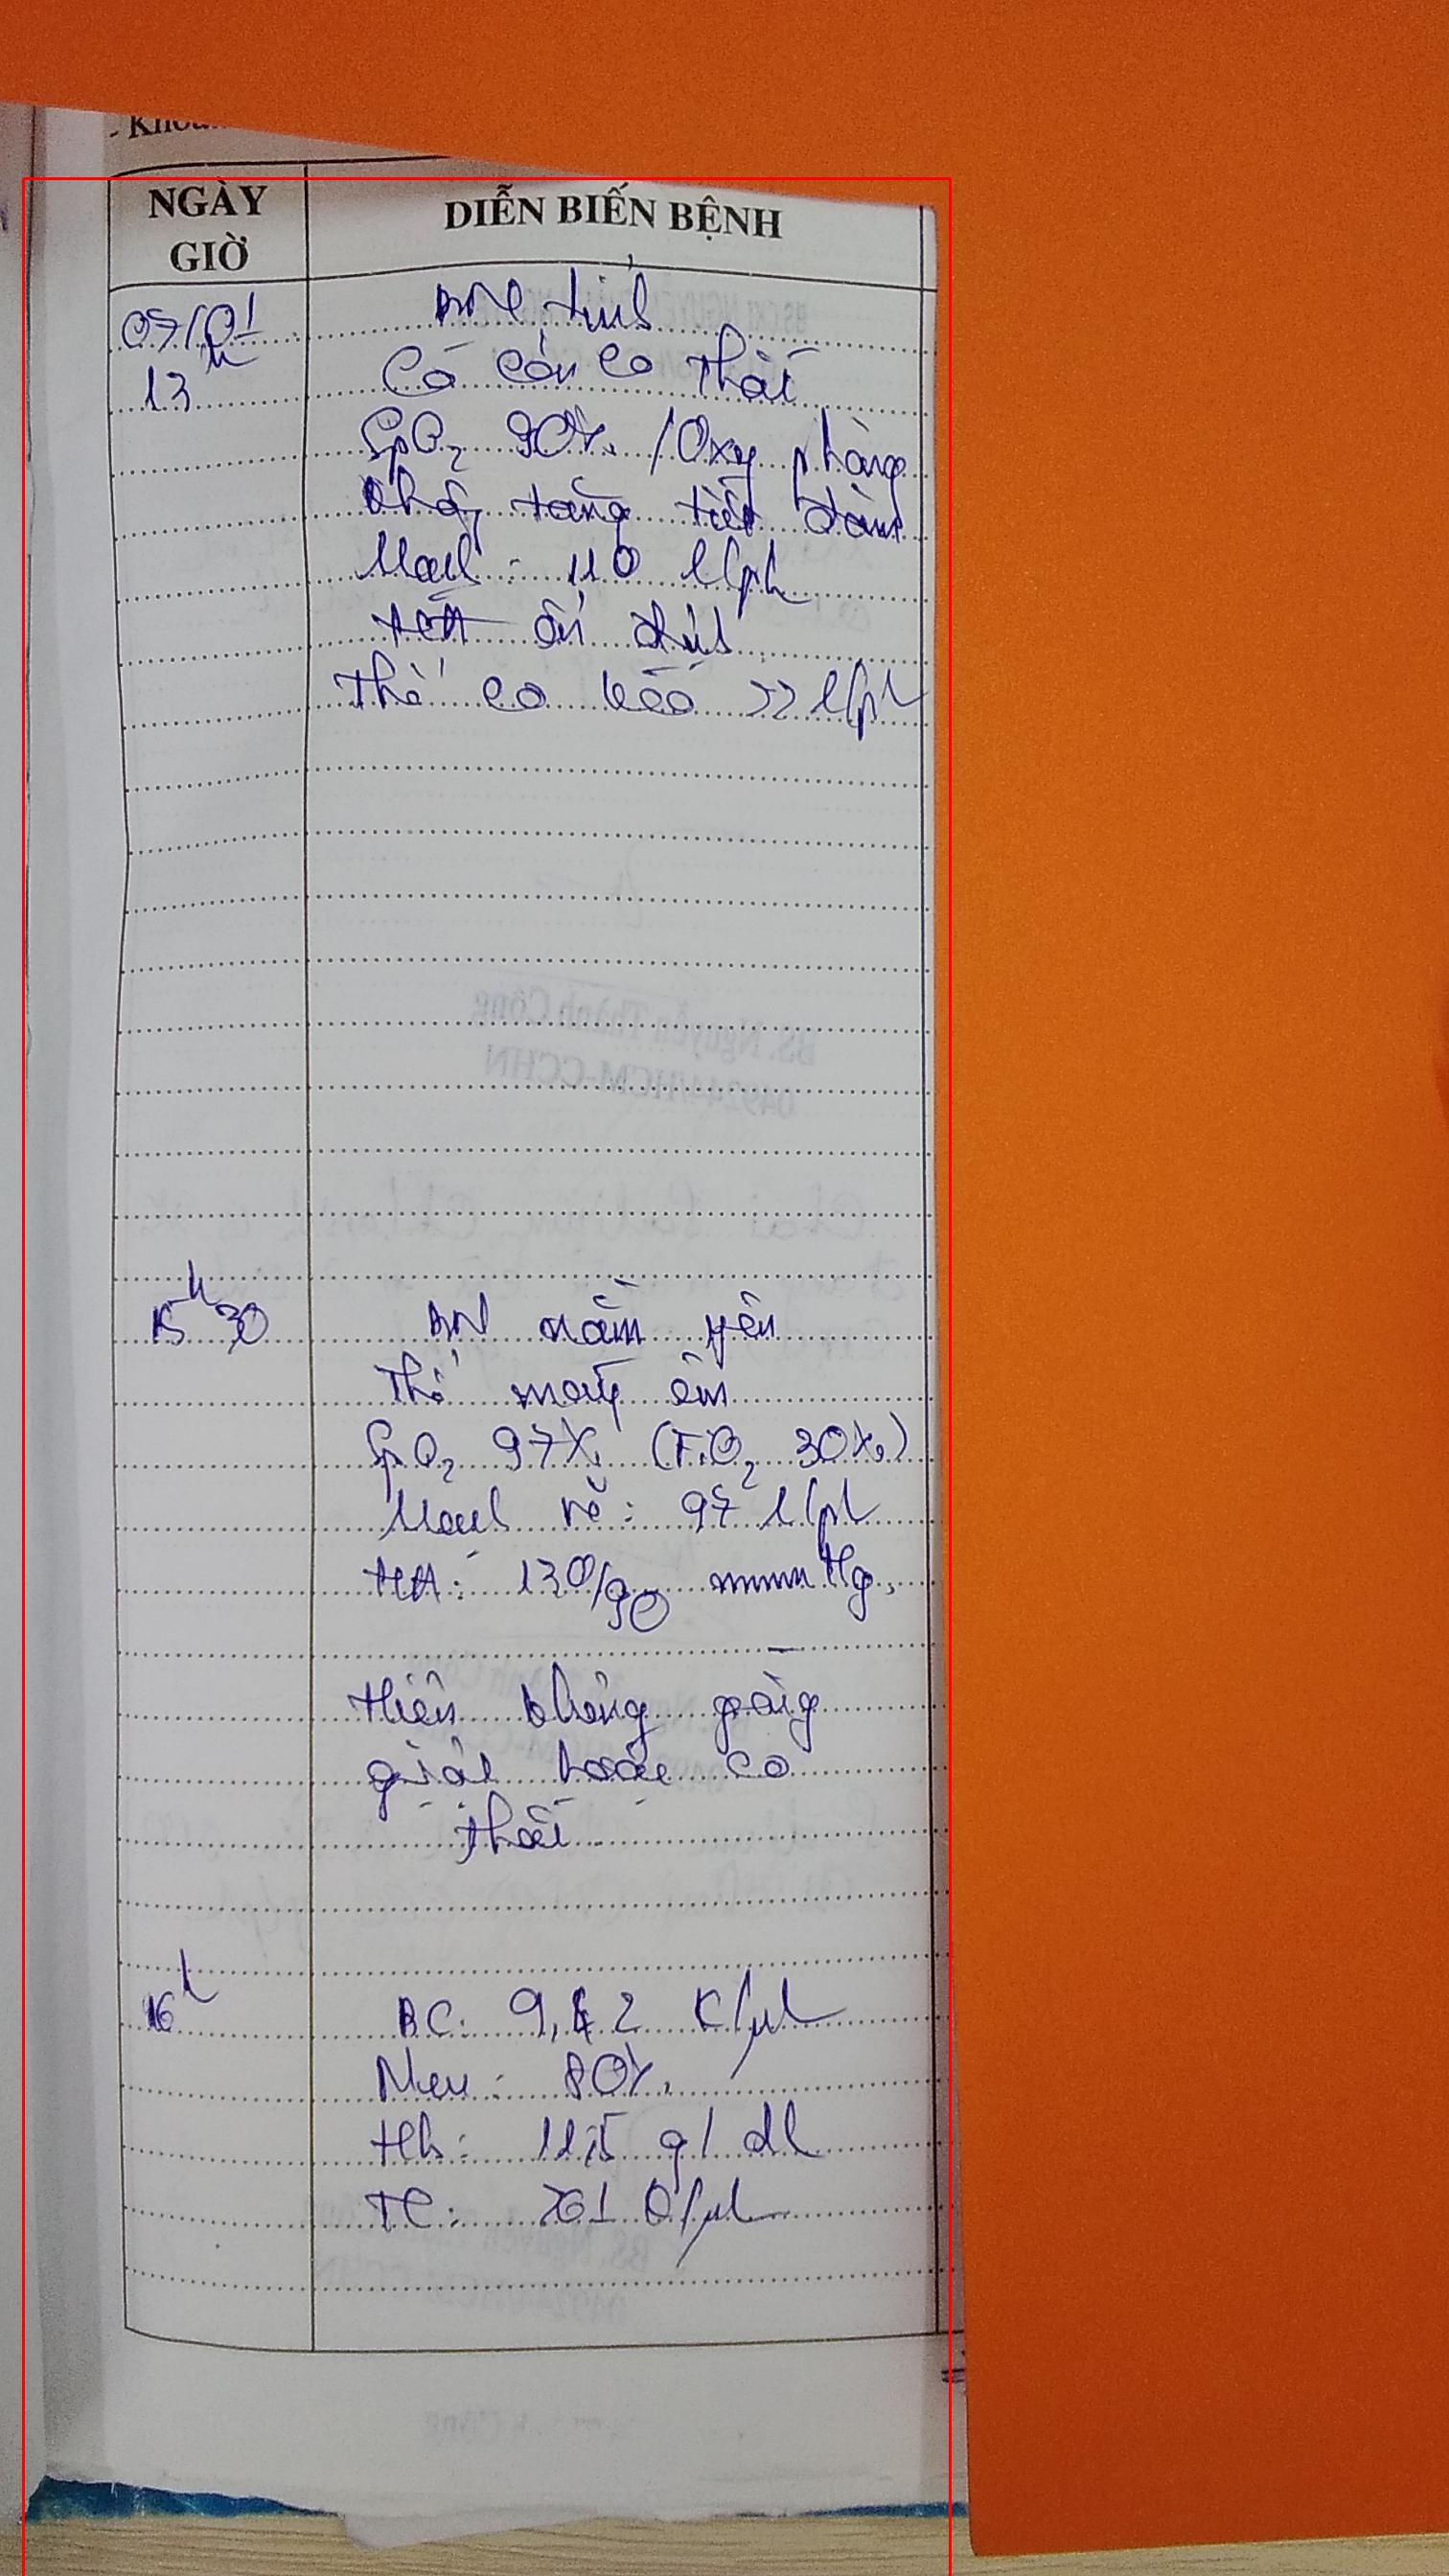 NGÀY
GIỜ
DIỄN BIẾN BỆNH
07/01
13h
BN tỉnh
Có cơn co thắt
SpO2 90% /Oxy phòng
tăng tiết đàm
Mạch: 110 l/ph
HA ổn định
Thở co kéo 22 l/ph
15h30
BN nằm yên
Thở máy êm
SpO2 97% (FiO2 30%)
Mạch rõ: 97 l/ph
HA: 130/90 mmHg
Hiện không gồng
giật hoặc co
thắt
16h
BC: 9,42 K/µl
Neu: 80%
Hb: 11,5 g/dl
TC: 261 K/µl
BS. Nguyễn Thành Công